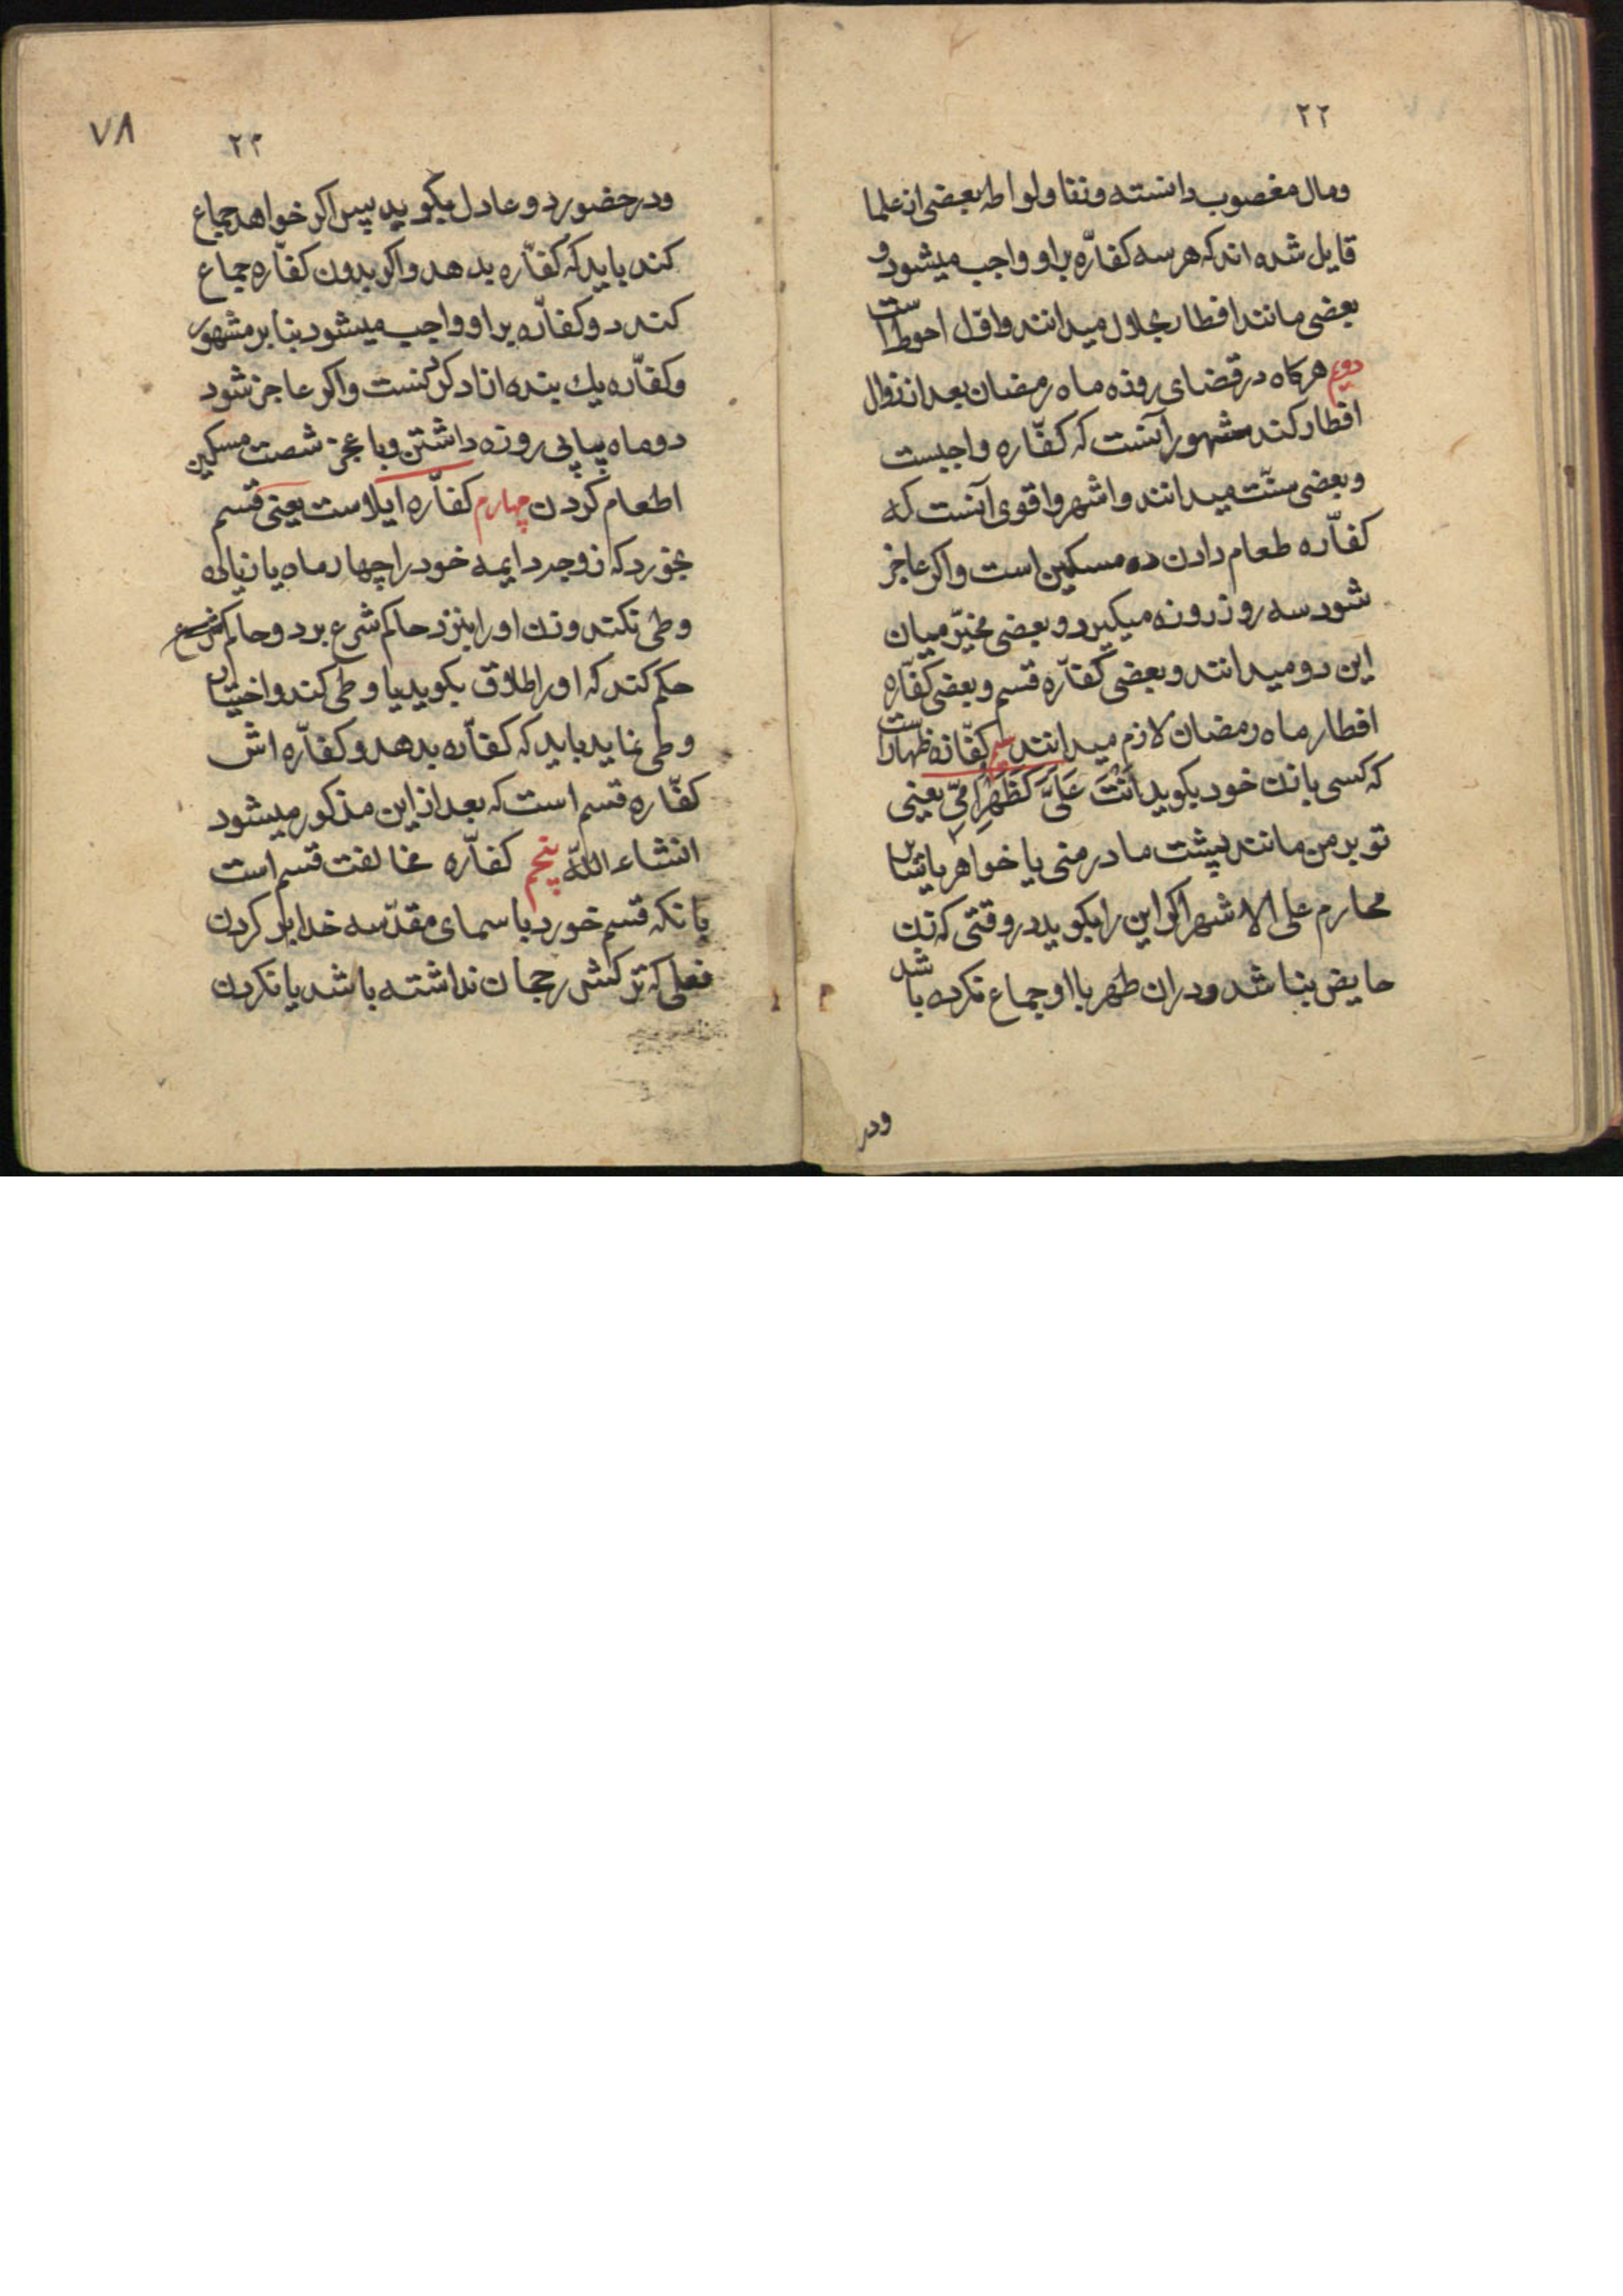 ۲۲
ومال مغصوب دانسته وزنا ولواطه بعضی از علما
قایل شده اند که هر سه کفّاره براو واجب میشود و
بعضی مانند افطار بحلال میدانند واوّل احوط است
دویم هرکاه در قضای روزه ماه رمضان بعد از زوال
افطار کند مشهور آنست که کفّاره واجبست
وبعضی سنّت میدانند واشهر واقوی آنست که
کفّاره طعام دادن ده مسکین است واکر عاجز
شود سه روز روزه میکیرد وبعضی مخیّر میان
این دو میدانند وبعضی کفّاره قسم وبعضی کفّاره
افطار ماه رمضان لازم میدانند سیم کفّاره ظهار است
که کسی با زن خود بکوید اَنْتَ عَلَیَّ کَظَهْرِ اُمّی یعنی
تو بر من مانند پشت مادر منی یا خواهر یا سایر
محارم علی الاشهر اکر این را بکوید در وقتی که زن
حایض نباشد ودران طهر با او جماع نکرده باشد
ودر
۷۸
۲۳
ودر حضور دو عادل بکوید پس اکر خواهد جماع
کند باید که کفّاره بدهد واکر بدون کفّاره جماع
کند دو کفّاره براو واجب میشود بنا بر مشهور
وکفّاره یك بنده ازاد کردنست واکر عاجز شود
دو ماه پیاپی روزه داشتن وبا عجز شصت مسکین
اطعام کردن چهارم کفّاره ایلاست یعنی قسم
بخورد که زوجه دایمه خود را چهار ماه یا زیاده
وطی نکند وزن او را بنزد حاکم شرع برد وحاکم شرع
حکم کند که او را طلاق بکوید یا وطی کند واختیار
وطی نماید باید که کفّاره بدهد وکفّاره اش
کفّاره قسم است که بعد از این مذکور میشود
انشاء اللّه پنجم کفّاره مخالفت قسم است
بانکه قسم خورد باسمای مقدّسه خدا بر کردن
فعلی که ترکش رجحان نداشته باشد یا نکردن